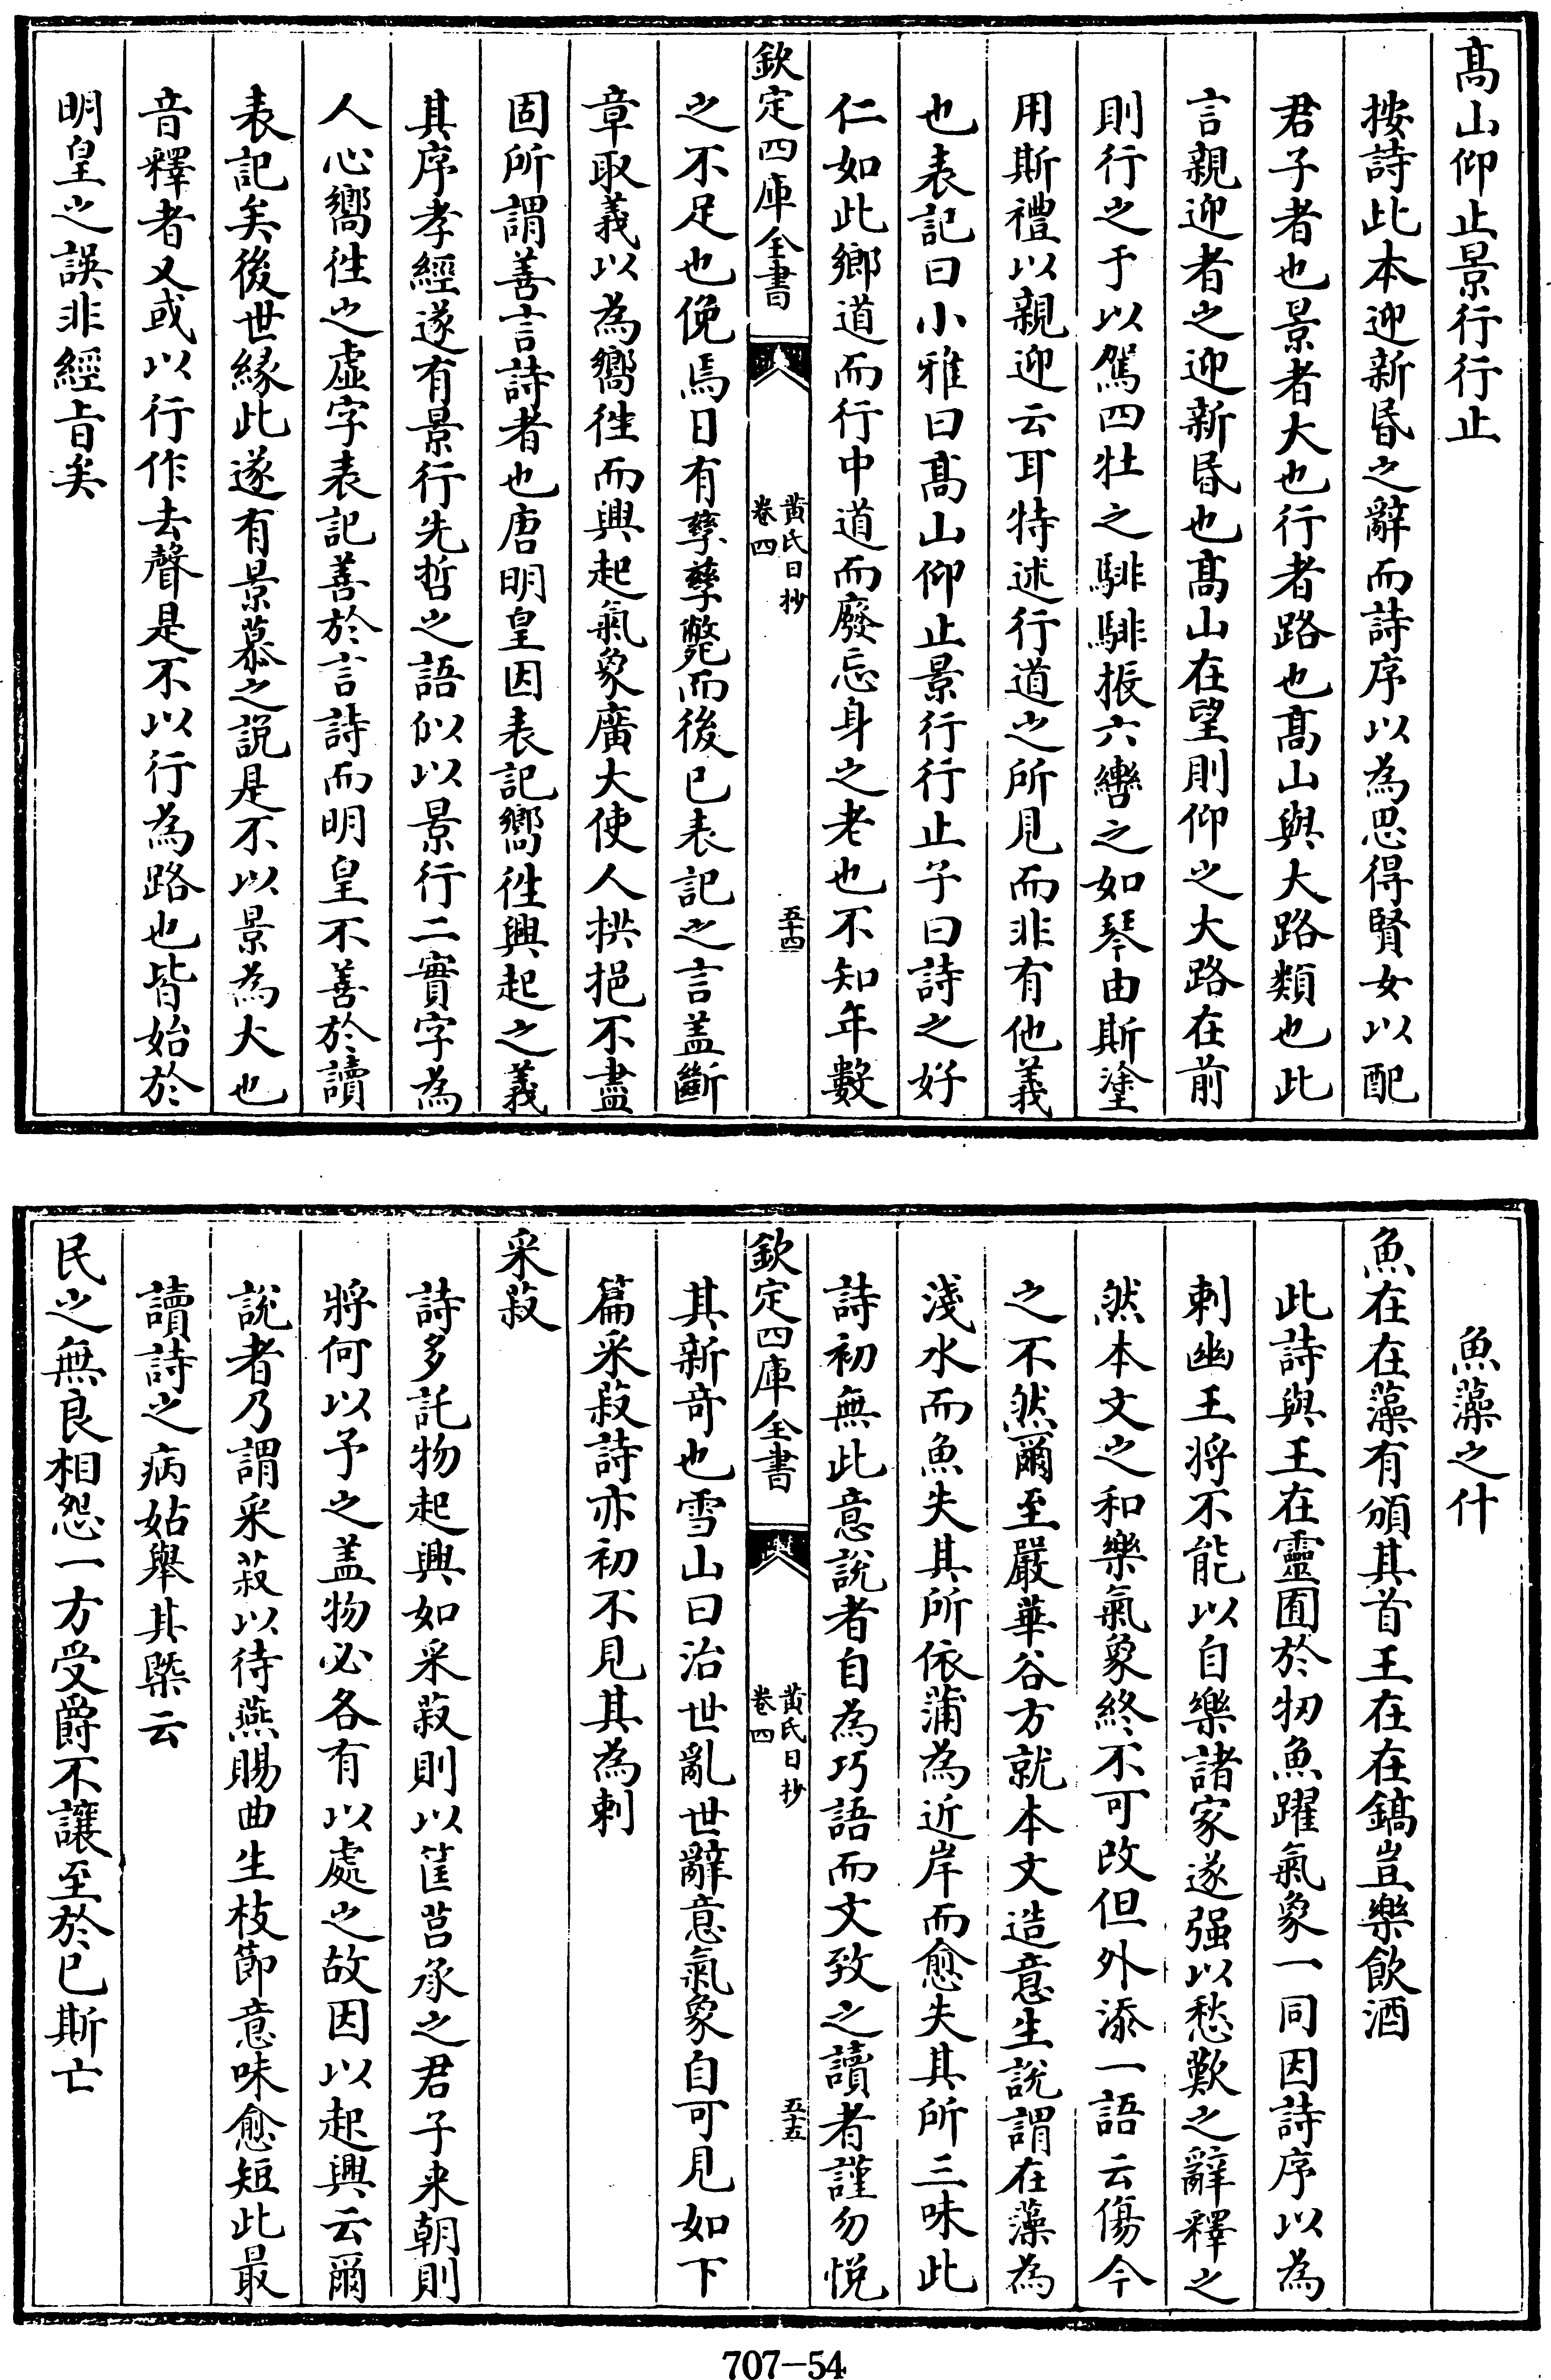 髙山仰止景行行止
按詩此本迎新昏之辭而詩序以為思得賢女以配
君子者也景者大也行者路也髙山與大路類也此
言親迎者之迎新昏也髙山在望則仰之大路在前
則行之于以駕四牡之騑騑振六轡之如琴由斯塗
用斯禮以親迎云耳特述行道之所見而非有他義
也表記曰小雅曰髙山仰止景行行止子曰詩之好
仁如此鄉道而行中道而廢忘身之老也不知年數
欽定四庫全書
黄氏日抄
卷四
五十四
之不足也俛焉日有孳孳斃而後已表記之言盖斷
章取義以為嚮徃而興起氣象廣大使人拱挹不盡
固所謂善言詩者也唐明皇因表記嚮徃興起之義
其序孝經遂有景行先哲之語似以景行二實字為
人心嚮徃之虚字表記善於言詩而明皇不善於讀
表記矣後世縁此遂有景慕之説是不以景為大也
音釋者又或以行作去聲是不以行為路也皆始於
明皇之誤非經㫖矣
魚藻之什
魚在在藻有頒其首王在在鎬豈樂飲酒
此詩與王在靈囿於牣魚躍氣象一同因詩序以為
刺幽王将不能以自樂諸家遂强以愁歎之辭釋之
然本文之和樂氣象終不可改但外添一語云傷今
之不然爾至嚴華谷方就本文造意生説謂在藻為
淺水而魚失其所依蒲為近岸而愈失其所三味此
詩初無此意説者自為巧語而文致之讀者謹勿悦
欽定四庫全書
黄氏日抄
卷四
五十五
其新奇也雪山曰治世亂世辭意氣象自可見如下
篇采菽詩亦初不見其為刺
采菽
詩多託物起興如采菽則以筐莒承之君子来朝則
將何以予之盖物必各有以處之故因以起興云爾
説者乃謂采菽以待燕賜曲生枝節意味愈短此最
讀詩之病姑舉其槩云
民之無良相怨一方受爵不讓至於已斯亡
707-54